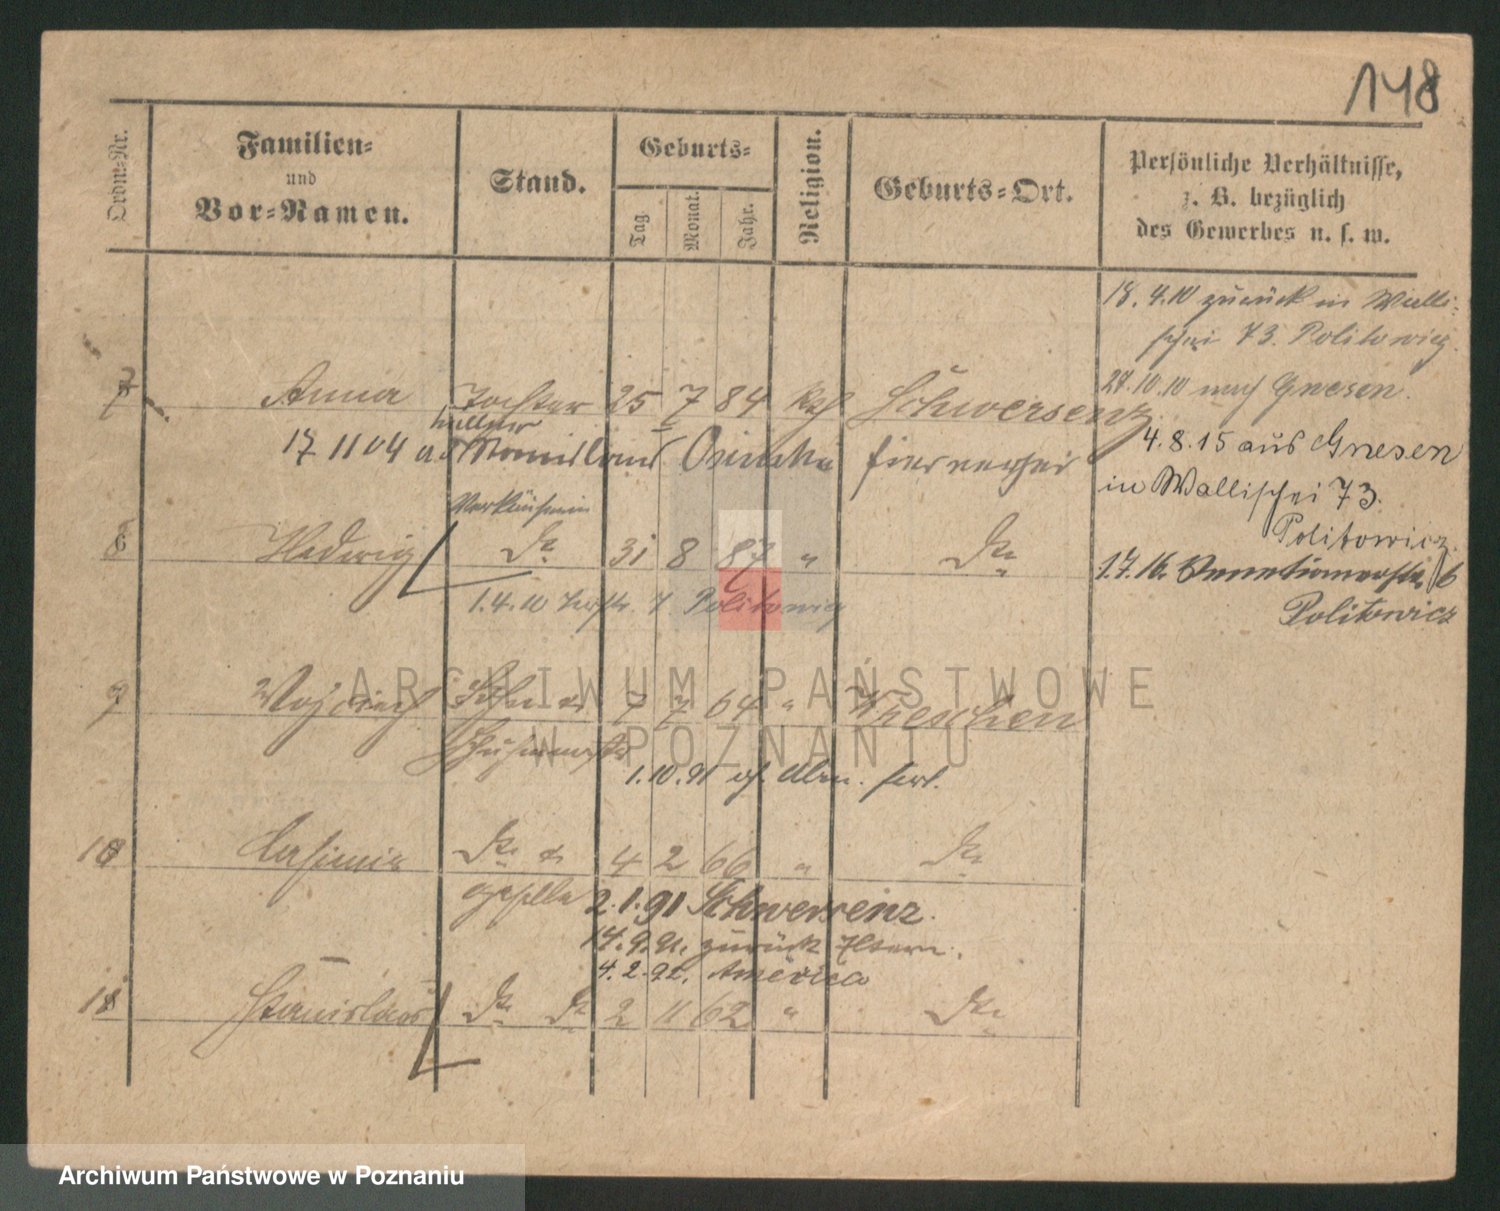 148
Ordm-Nr.
Familien-
und
Vor-Namen.
Stand.
Geburts-
Tag
Monat.
Jahr.
Religion.
Geburts-Ort.
Persönliche Verhältnisse,
z. B. bezüglich
des Gewerbes u. s. w.
18. 4.10 zurück in Walli-
schei 73. Politowicz.
27.10.10 nach Gnesen.
4.8.15 aus Gnesen
in Wallischei 73.
Politowicz.
1.7.16. 6
Politowicz
7 Anna Tochter 25 7 84 kath Schwersenz
17 11 04
Verkäuferin
8 Hedwig do 31 8 87 " do
1.4.10 Politowicz
9 Wojciech Sohn 7 7 64 " Wreschen
1.10.91
10 Casimir do 4 2 66 " do
geselle 2.1.91 Schwersenz.
14.9.91. zurück Eltern.
4.2.92. America
11 Stanislaus do do 2 11 62 " do
ARCHIWUM PAŃSTWOWE
W POZNANIU
Archiwum Państwowe w Poznaniu